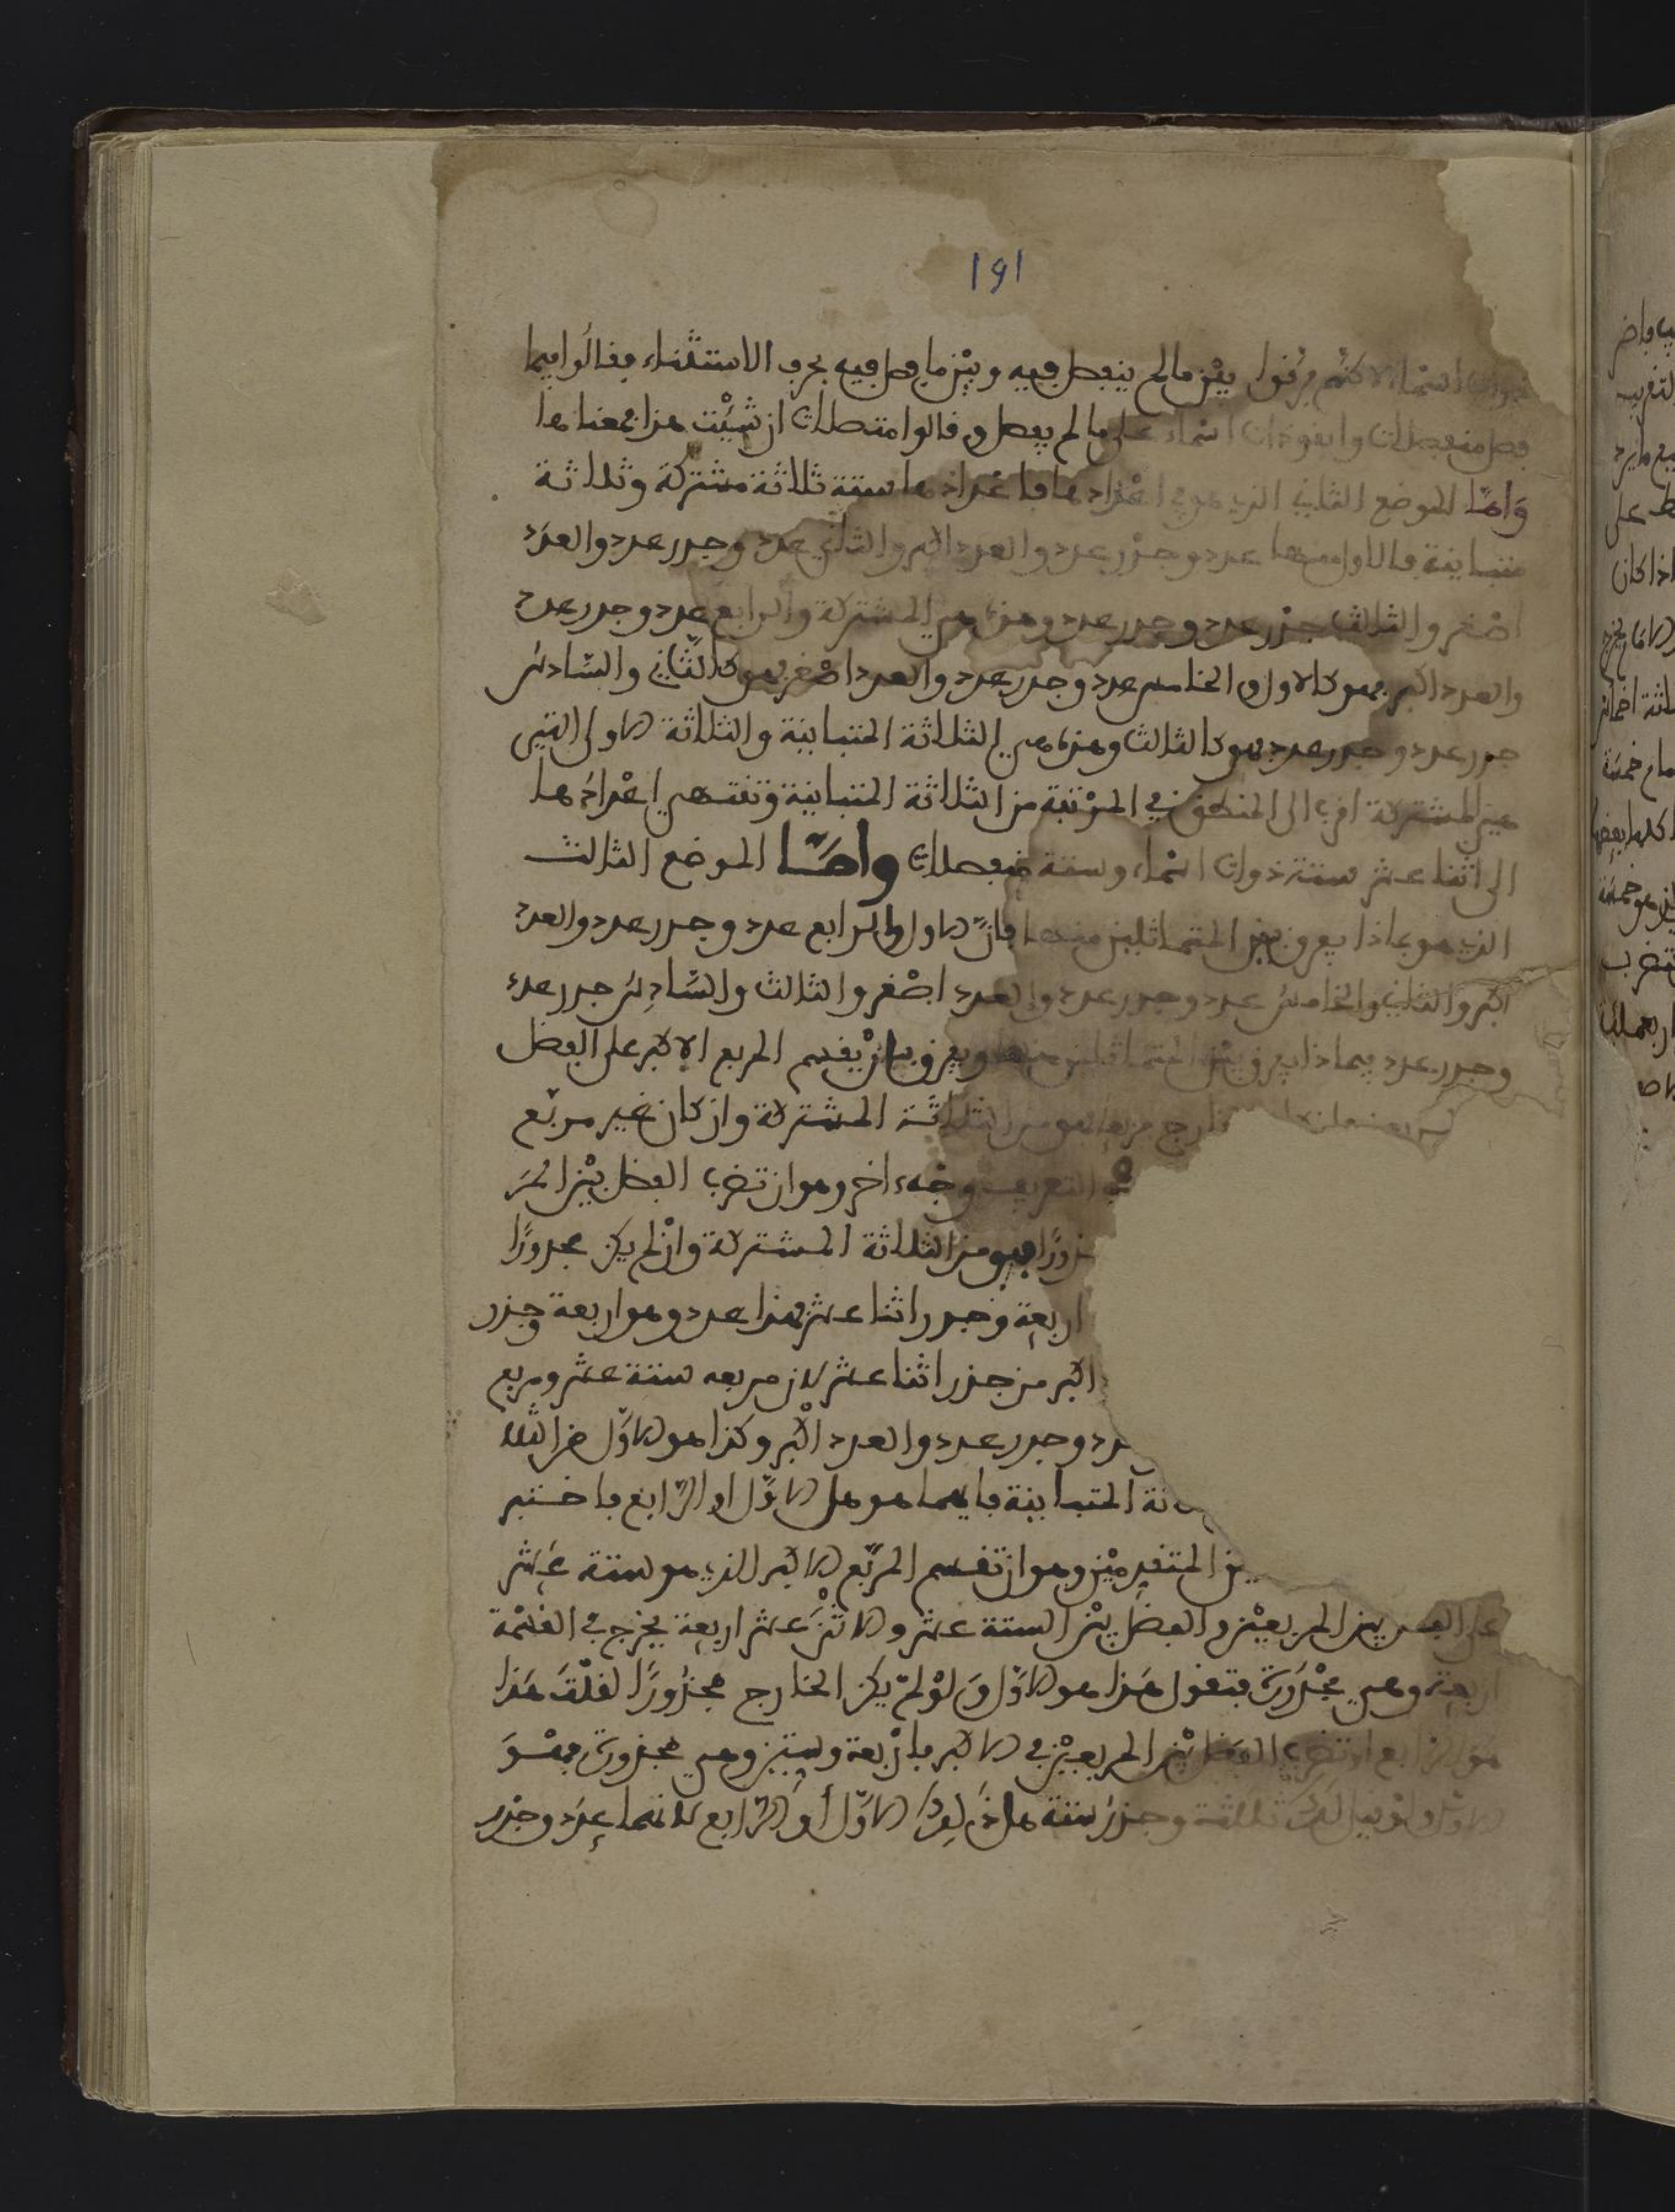 191
ذوات اسما الا كنهم فرقوا بين ما لم ينفصل فيه وبين ما فصل فيه بحرف الاستثناء فقالوا فيما
فصل منفصلات وابقو ذوات اسماء على ما لم يفصل وقالوا متصلات ان شيت هذا معناها
وَامَّا الموضع الثاني الذي هو في اعدادها فاعدادها ستة ثلاثة مشتركة وثلاثة
متباينة فالاول منها عدد وجذر عدد والعدد اكبر والثاني عدد وجدر عدد والعدد
اصغر والثالث جذر عدد وجدر عدد وهذه هي المشتركة والرابع عدد وجدر عدد
والعدد اكبر فهو كالاول والخامس عدد وجدر عدد والعدد اصغر فهو كالثاني والسّادس
جدر عدد وجدر عدد فهو كالثالث وهذه هي الثلاثة المتباينة والثلاثة الاولى التي
هي المشتركة اقرب الى المنطق في المرتبة من الثلاثة المتباينة وتنتهي اعدادها
الى اثنا عشر ستة ذوات اسماء وستة منفصلات وامّا الموضع الثالث
الذي هو بماذا يعرف بين المتماثلين منها فانّ الاول والرابع عدد وجدر عدد والعدد
اكبر والثاني والخامس عدد وجدر عدد والعدد اصغر والثالث والسّادس جدر عدد
وجدر عدد فبماذا يعرف بين المتماثلين منها ويعرف بان يقسم المربع الاكبر على الفضل
خارج مربعا فهو من الثلاثة المشتركة وان كان غير مربّع
في التعريف وجه اخر وهو ان تضرب الفضل بين المر
ذورًا فهو من الثلاثة المشتركة وان لم يكن مجدورًا
اربعة وجدر اثنا عشر فهذا عدد وهو اربعة وجذر
اكبر من جذر اثنا عشر لان مربعه ستة عشر ومربع
دد وجدر عدد والعدد اكبر وكذا هو الاوّل من الثلا
ثة المتباينة فايهما هو هل الاوّل او الرّابع فاختبر
ين المتقدمين وهو ان تقسم المربّع الاكبر الذي هو ستة عشر
على الفضل بين المربعين والفضل بين الستة عشر والاثنى عشر اربعة يخرج في القسمة
اربعة وهي مجذورة فتقول هذا هو الاوّل وَلوْ لمْ يكن الخارج مجذورًا لقلْتَ هَذا
هو الرّابع او تضرب الفضل بين المربعين في الاكبر باربعة وستين وهي مجذورة فهْوَ
الاوّل ولو قيل لك ثلاثة وجذر ستة هل الاوّل أو الرّابع لانهما عدد وجذر